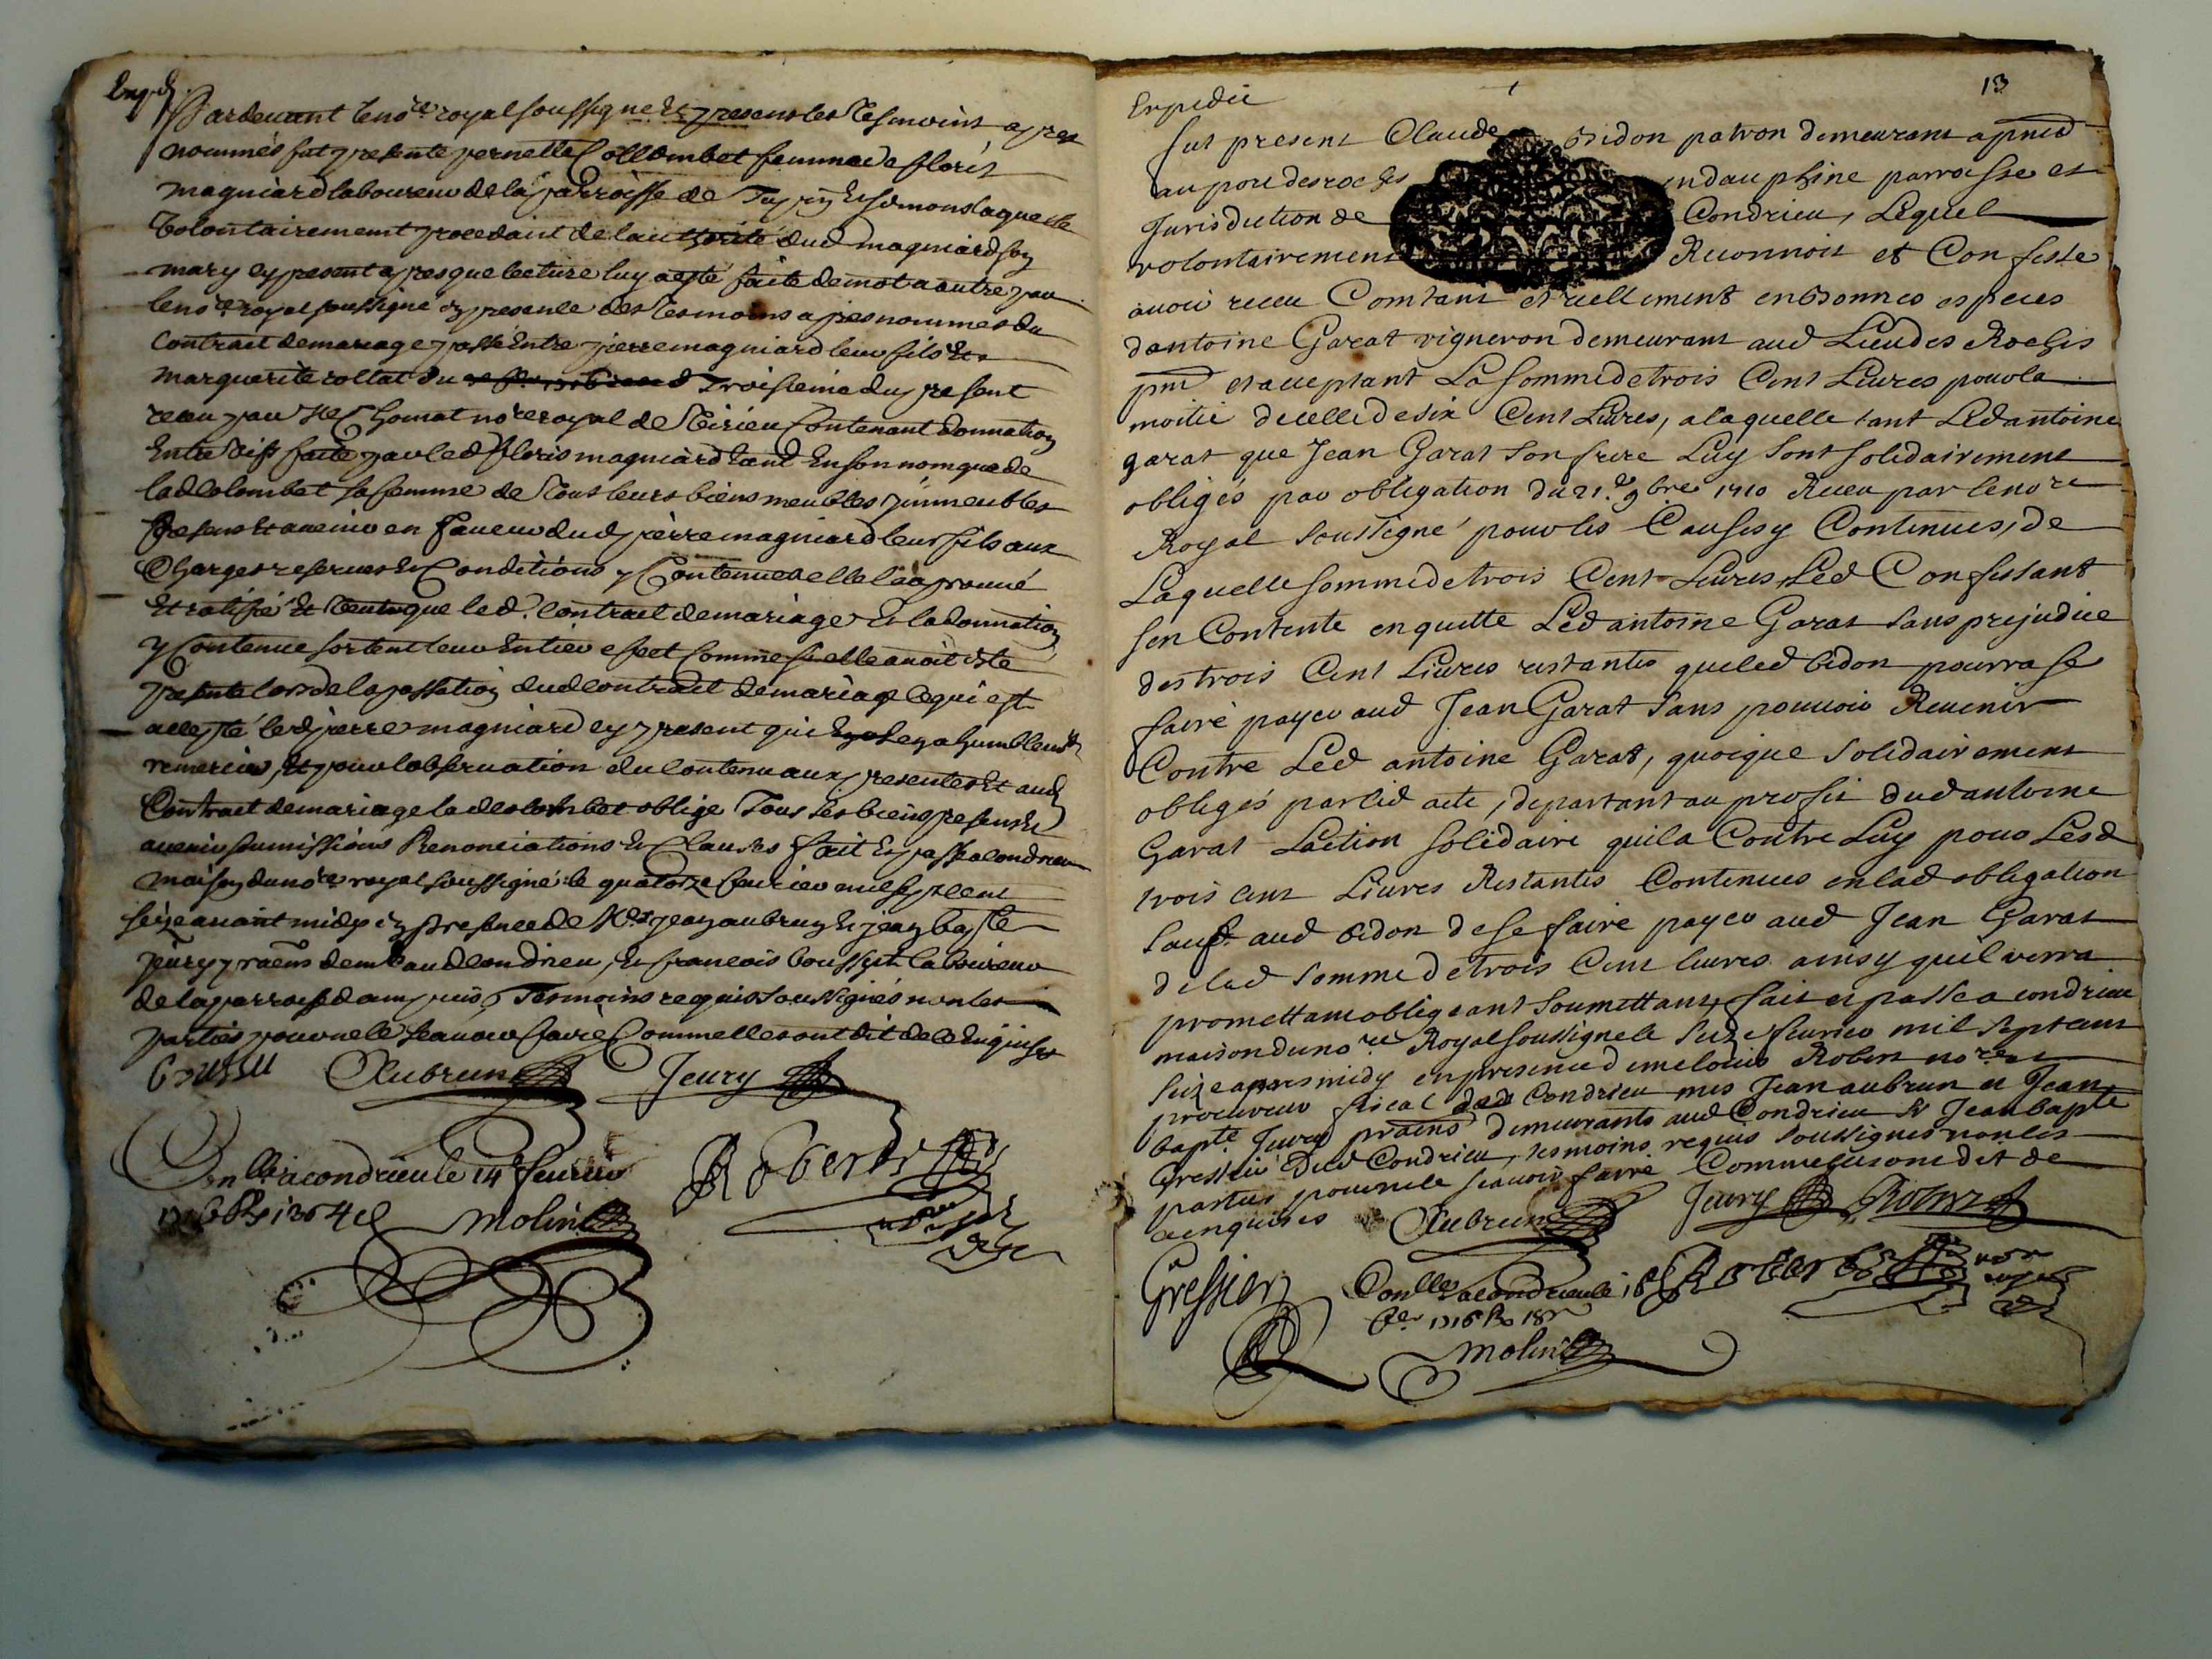 Exp.
Pardevant le no.re royal soussigné et presents les tesmoins apres
nommés fut presente pernette Collombet femme de floris
magniard laboureur de la parroisse de Tupin et semons laquelle
volontairement procedant de lauthorité dud magniard son
mary cy present apres que lecture luy a esté faite de mot a autre par
le no.re royal soussigné en presence des tesmoins apres nommés du
contract de mariage passé entre pierre magniard leur fils et
marguerite rollat du troisieme du present
receu par Me no.re royal de Contenant donnation
entre vifs faite par led floris magniard tant en son nom que de
lad Colombet sa femme de tous leurs biens meubles immeubles
presens et avenir en faveur dud pierre magniard leur fils aux
Charges reserves et Conditions y Contenues elle la aprouvé
et ratifié et veut que led. Contract de mariage et la donnation
y Contenue sortent leur entier effect comme si elle avoit esté
presente lors de la passation dud contract de mariage ce qui est
accepté led pierre magniard cy present qui len a humblem.t
remercié, et pour lobservation du contenu aux presentes et aud
Contract de mariage lad Colombet oblige tous ses biens presens et
avenir soumissions Renonciations et Clauses fait et passé a Condrieu
maison du no.re royal soussigné le quatorze fevrier mil sept cent
seize avant midy en presence de Mes jean aubrun et jean bapte
jeury praens dem.t aud Condrieu, et francois boussu laboureur
de la parroisse dampuis tesmoins requis soussignés non les
parties pour ne le scavoir faire Comme elles ont dit de ce enquises
boussu Aubrun Jeury
Con.llé a condrieu le 14 fevrier
1716 Molin
Robert
Expedié
13
fut present Claude Bidon patron demeurant a pnt
au port des roches en dauphine parroisse et
Jurisdiction de Condrieu, Lequel
volontairement Reconnoit et Confesse
avoir receu Comtant et reellement en bonnes especes
dantoine Garat vigneron demeurant aud Lieu des Roches
pnt et acceptant La somme de trois Cent Livres pour la
moitié de celle de six Cent Livres, a laquelle tant Led antoine
garat que Jean Garat son frere Luy sont solidairement
obligés par obligation du 21.e 9bre 1710 Receu par le no.re
Royal soussigné pour les Causes y Contenues, de
Laquelle somme de trois Cent Livres Led Confessant
sen Contente en quitte Led antoine Garat sans prejudice
des trois Cent Livres restantes que led bidon pourra se
faire payer aud Jean Garat sans pouvoir Revenir
Contre Led antoine Garat, quoique solidairement
obligés par led acte, departant au profit dud antoine
Garat Laction solidaire quil a Contre Luy pour Lesd
trois Cent Livres Restantes Contenues en lad obligation
sauf aud bidon de se faire payer aud Jean Garat
de lad somme de trois Cent livres ainsy quil verra
promettant obligeant soumettant, fait et passé a condrieu
maison du no.re Royal soussigné le seize fevrier mil sept cent
seize apres midy en presence de me louis Robin no.re et
procureur fiscal dud Condrieu mes Jean aubrun et Jean
bapte Jeury praens demeurants aud Condrieu Sr Jean bapte
Gressier dud Condrieu, tesmoins requis soussignés non les
parties pour ne le scavoir faire Comme ils ont dit de
ce enquises Aubrun Jeury Robin
Gressier Con.llé a condrieu le 18 Robert
1716
Molin